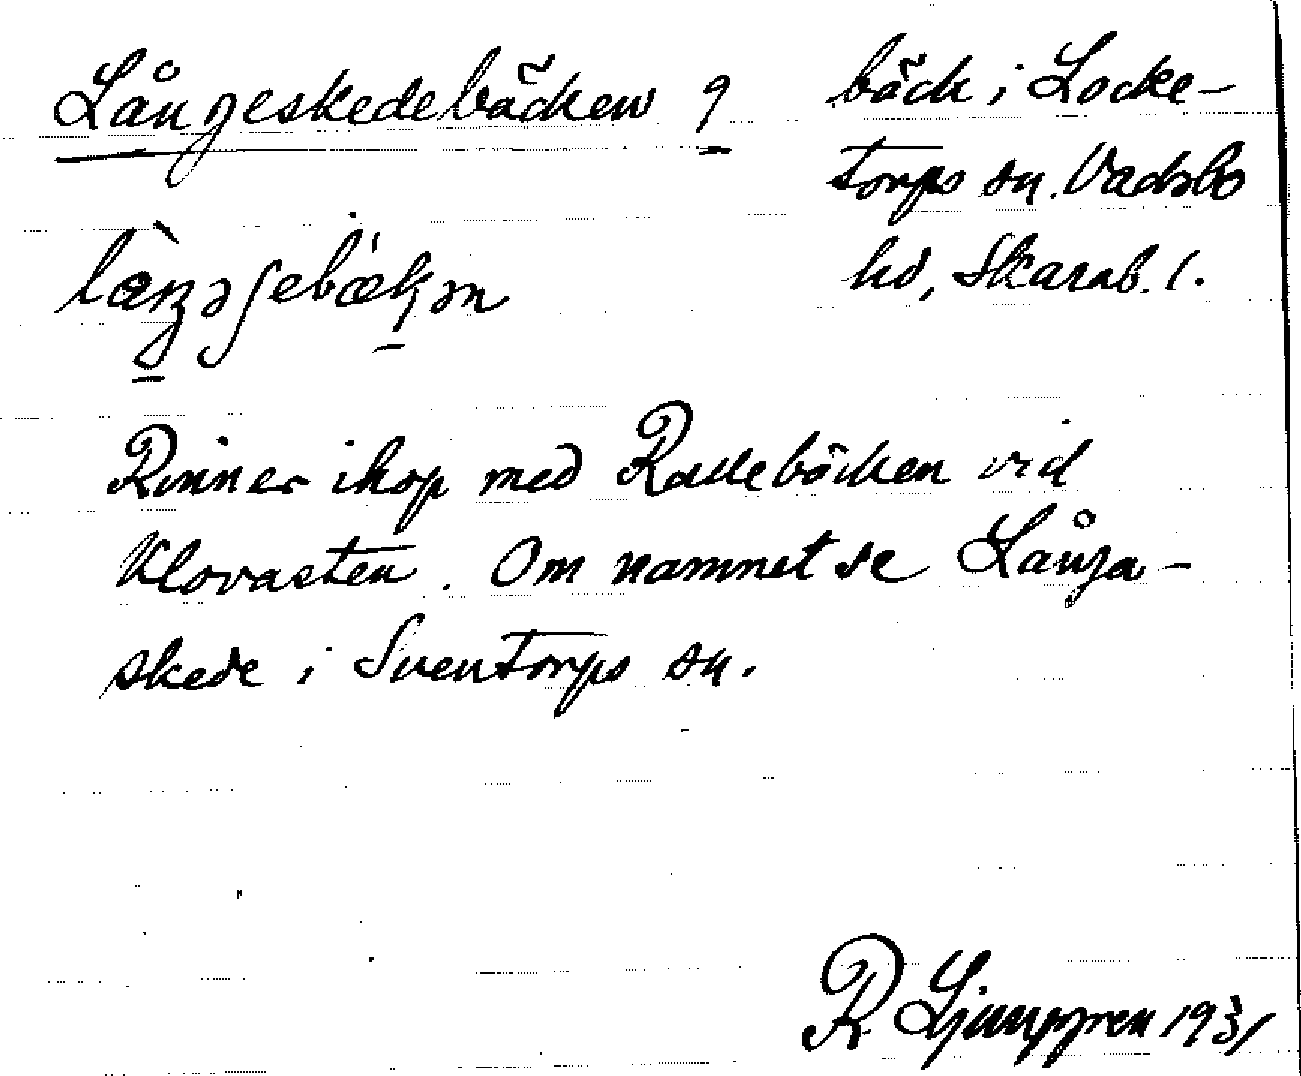 Långeskedebäcken 9
bäck i Locke-
torps sn. Vadsbo
hd, Skarab. l.
Rinner ihop med Radebäcken vid
Klovasten. Om namnet se Långa-
skede i Sventorps sn.
R Ljunggren 1931